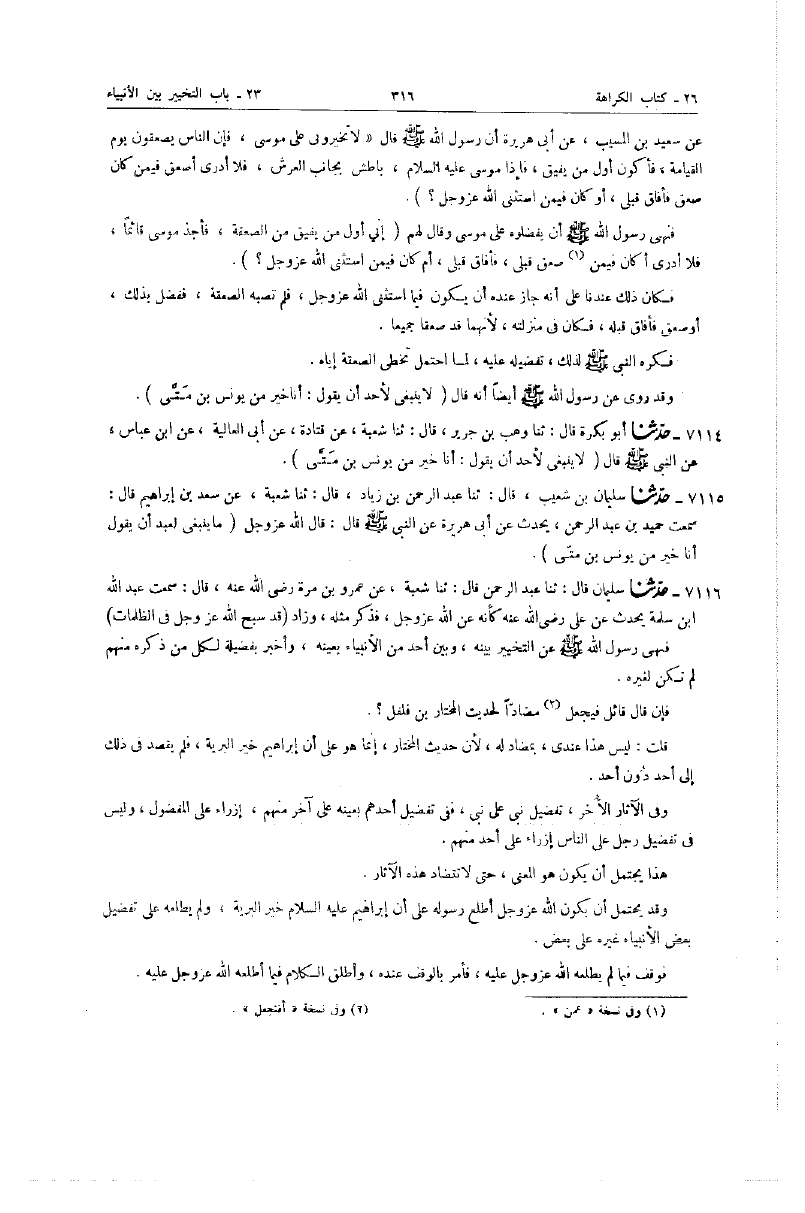 ٢٦ - كتاب الكراهة ٣١٦ ٢٣ - باب التخيير بين الأنبياء
عن سعيد بن المسيب ، عن أبى هريرة أن رسول الله ﷺ قال « لاتخيرونى على موسى ، فإن الناس يصعقون يوم
القيامة ، فأكون أول من يفيق ، فإذا موسى عليه السلام ، باطش بجانب العرش ، فلا أدرى أصعق فيمن كان
صعق فأفاق قبلى ، أو كان فيمن استثنى الله عزوجل ؟ ) .
فنهى رسول الله ﷺ أن يفضلوه على موسى وقال لهم ( إني أول من يفيق من الصعقة ، فأجد موسى قائماً ،
فلا أدرى أكان فيمن (١) صعق قبلى ، فأفاق قبلى ، أم كان فيمن استثنى الله عزوجل ؟ ) .
فكان ذلك عندنا على أنه جاز عنده أن يكون فيما استثنى الله عزوجل ، فلم تصبه الصعقة ، ففضل بذلك ،
أوصعق فأفاق قبله ، فكان فى منزلته ، لأنهما قد صعقا جميعا .
فكره النبي ﷺ لذلك ، تفضيله عليه ، لما احتمل تخطى الصعقة إياه .
وقد روى عن رسول الله ﷺ أيضاً أنه قال ( لاينبغى لأحد أن يقول : أناخير من يونس بن مَتَّى ) .
٧١١٤ - حدّثنا أبو بكرة قال : ثنا وهب بن جرير ، قال : ثنا شعبة ، عن قتادة ، عن أبى العالية ، عن ابن عباس ،
عن النبي ﷺ قال ( لاينبغى لأحد أن يقول : أنا خير من يونس بن مَتَّى ) .
٧١١٥ - حدّثنا سليمان بن شعيب ، قال : ثنا عبد الرحمن بن زياد ، قال : ثنا شعبة ، عن سعد بن إبراهيم قال :
سمعت حميد بن عبد الرحمن ، يحدث عن أبى هريرة عن النبي ﷺ قال : قال الله عزوجل ( ماينبغى لعبد أن يقول
أنا خير من يونس بن متّى ) .
٧١١٦ - حدّثنا سليمان قال : ثنا عبد الرحمن قال : ثنا شعبة ، عن عمرو بن مرة رضى الله عنه ، قال : سمعت عبد الله
ابن سلمة يحدث عن على رضى الله عنه كأنه عن الله عزوجل ، فذكر مثله ، وزاد (قد سبح الله عز وجل فى الظلمات)
فنهى رسول الله ﷺ عن التخيير بينه ، وبين أحد من الأنبياء بعينه ، وأخبر بفضيلة لكل من ذكره منهم
لم تكن لغيره .
فإن قال قائل فيجعل (٢) مضادّاً لحديث المختار بن فلفل ؟ .
قلت : ليس هذا عندى ، بمضاد له ، لأن حديث المختار ، إنما هو على أن إبراهيم خير البرية ، فلم يقصد فى ذلك
إلى أحد دُون أحد .
وفى الآثار الأُخر ، تفضيل نبى على نبى ، ففى تفضيل أحدهم بعينه على آخر منهم ، إزراء على المفضول ، وليس
فى تفضيل رجل على الناس إزراء على أحد منهم .
هذا يحتمل أن يكون هو المعنى ، حتى لاتتضاد هذه الآثار .
وقد يحتمل أن يكون الله عزوجل أطلع رسوله على أن إبراهيم عليه السلام خير البرية ، ولم يطلعه على تفضيل
بعض الأنبياء غيره على بعض .
فوقف فيما لم يطلعه الله عزوجل عليه ، فأمر بالوقف عنده ، وأطلق الكلام فيما أطلعه الله عزوجل عليه .
(١) وفى نسخة « عمن » . (٢) وفى نسخة « أفتجعل » .